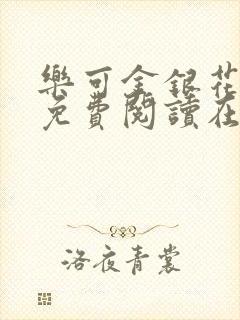 樂可金銀花
免費閱讀在
洛夜青裳